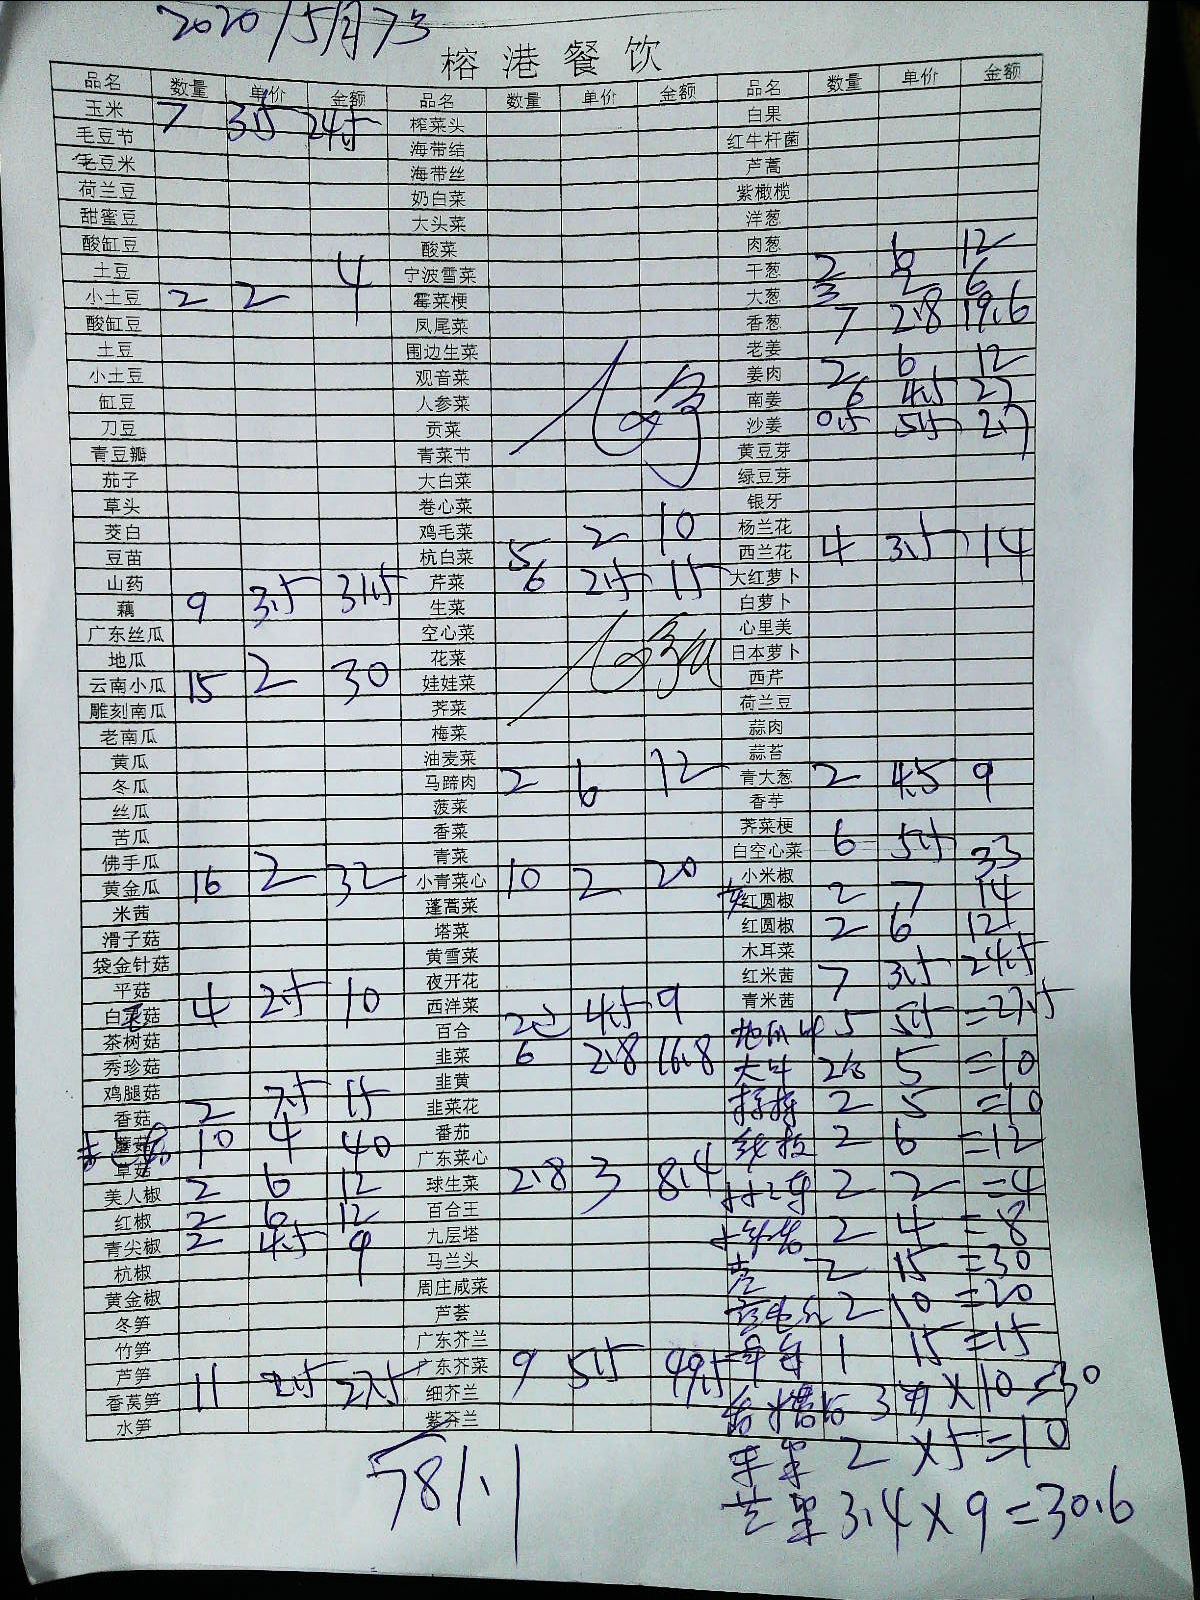 2020/5月73
榕港餐饮
品名 数量 单价 金额 品名 数量 单价 金额 品名 数量 单价 金额
玉米 7 3.5 24.5 榨菜头 白果
毛豆节 海带结 红牛杆菌
毛豆米 海带丝 芦蒿
荷兰豆 奶白菜 紫橄榄
甜蜜豆 大头菜 洋葱
酸缸豆 酸菜 肉葱
土豆 宁波雪菜 干葱 2 12
小土豆 2 2 4 霉菜梗 大葱 3 2 6
酸缸豆 凤尾菜 香葱 7 2.8 19.6
土豆 围边生菜 老姜
小土豆 观音菜 姜肉 2 6 12
缸豆 人参菜 南姜 6 4.5 27
刀豆 贡菜 沙姜 0.5 5.5 2.7
青豆瓣 青菜节 黄豆芽
茄子 大白菜 绿豆芽
草头 卷心菜 银牙
茭白 鸡毛菜 杨兰花
豆苗 杭白菜 5 2 10 西兰花 4 3.5 14
山药 芹菜 6 2.5 15 大红萝卜
藕 9 3.5 31.5 生菜 白萝卜
广东丝瓜 空心菜 心里美
地瓜 花菜 日本萝卜
云南小瓜 15 2 30 娃娃菜 西芹
雕刻南瓜 荠菜 荷兰豆
老南瓜 梅菜 蒜肉
黄瓜 油麦菜 蒜苔
冬瓜 马蹄肉 2 6 12 青大葱 2 4.5 9
丝瓜 菠菜 香芋
苦瓜 香菜 荠菜梗
佛手瓜 青菜 白空心菜 6 5.5 33
黄金瓜 16 2 32 小青菜心 10 2 20 小米椒
米茜 蓬蒿菜 红圆椒 2 7 14
滑子菇 塔菜 红圆椒 2 6 12
袋金针菇 黄雪菜 木耳菜
平菇 夜开花 红米茜 7 3.5 24.5
白灵菇 4 2.5 10 西洋菜 青米茜
茶树菇 百合 2 4.5 9 5 5.5 =27.5
秀珍菇 韭菜 6 2.8 16.8 5 =10
鸡腿菇 韭黄 2 5 =10
香菇 2 7.5 15 韭菜花 2 6 =12
蘑菇 10 4 40 番茄 2 2 =4
草菇 广东菜心 2 4 =8
美人椒 2 6 12 球生菜 2.8 3 8.4
红椒 2 6 12 百合王
青尖椒 2 4.5 9 九层塔
杭椒 马兰头 2 15 =30
黄金椒 周庄咸菜 2 10 =20
冬笋 芦荟
竹笋 广东芥兰 1 15 =15
芦笋 广东芥菜 9 5.5 49.5
香莴笋 11 2.5 27.5 细芥兰 3 ×10 =30
水笋 紫芥兰
2 ×5 =10
3.4×9=30.6
781.1